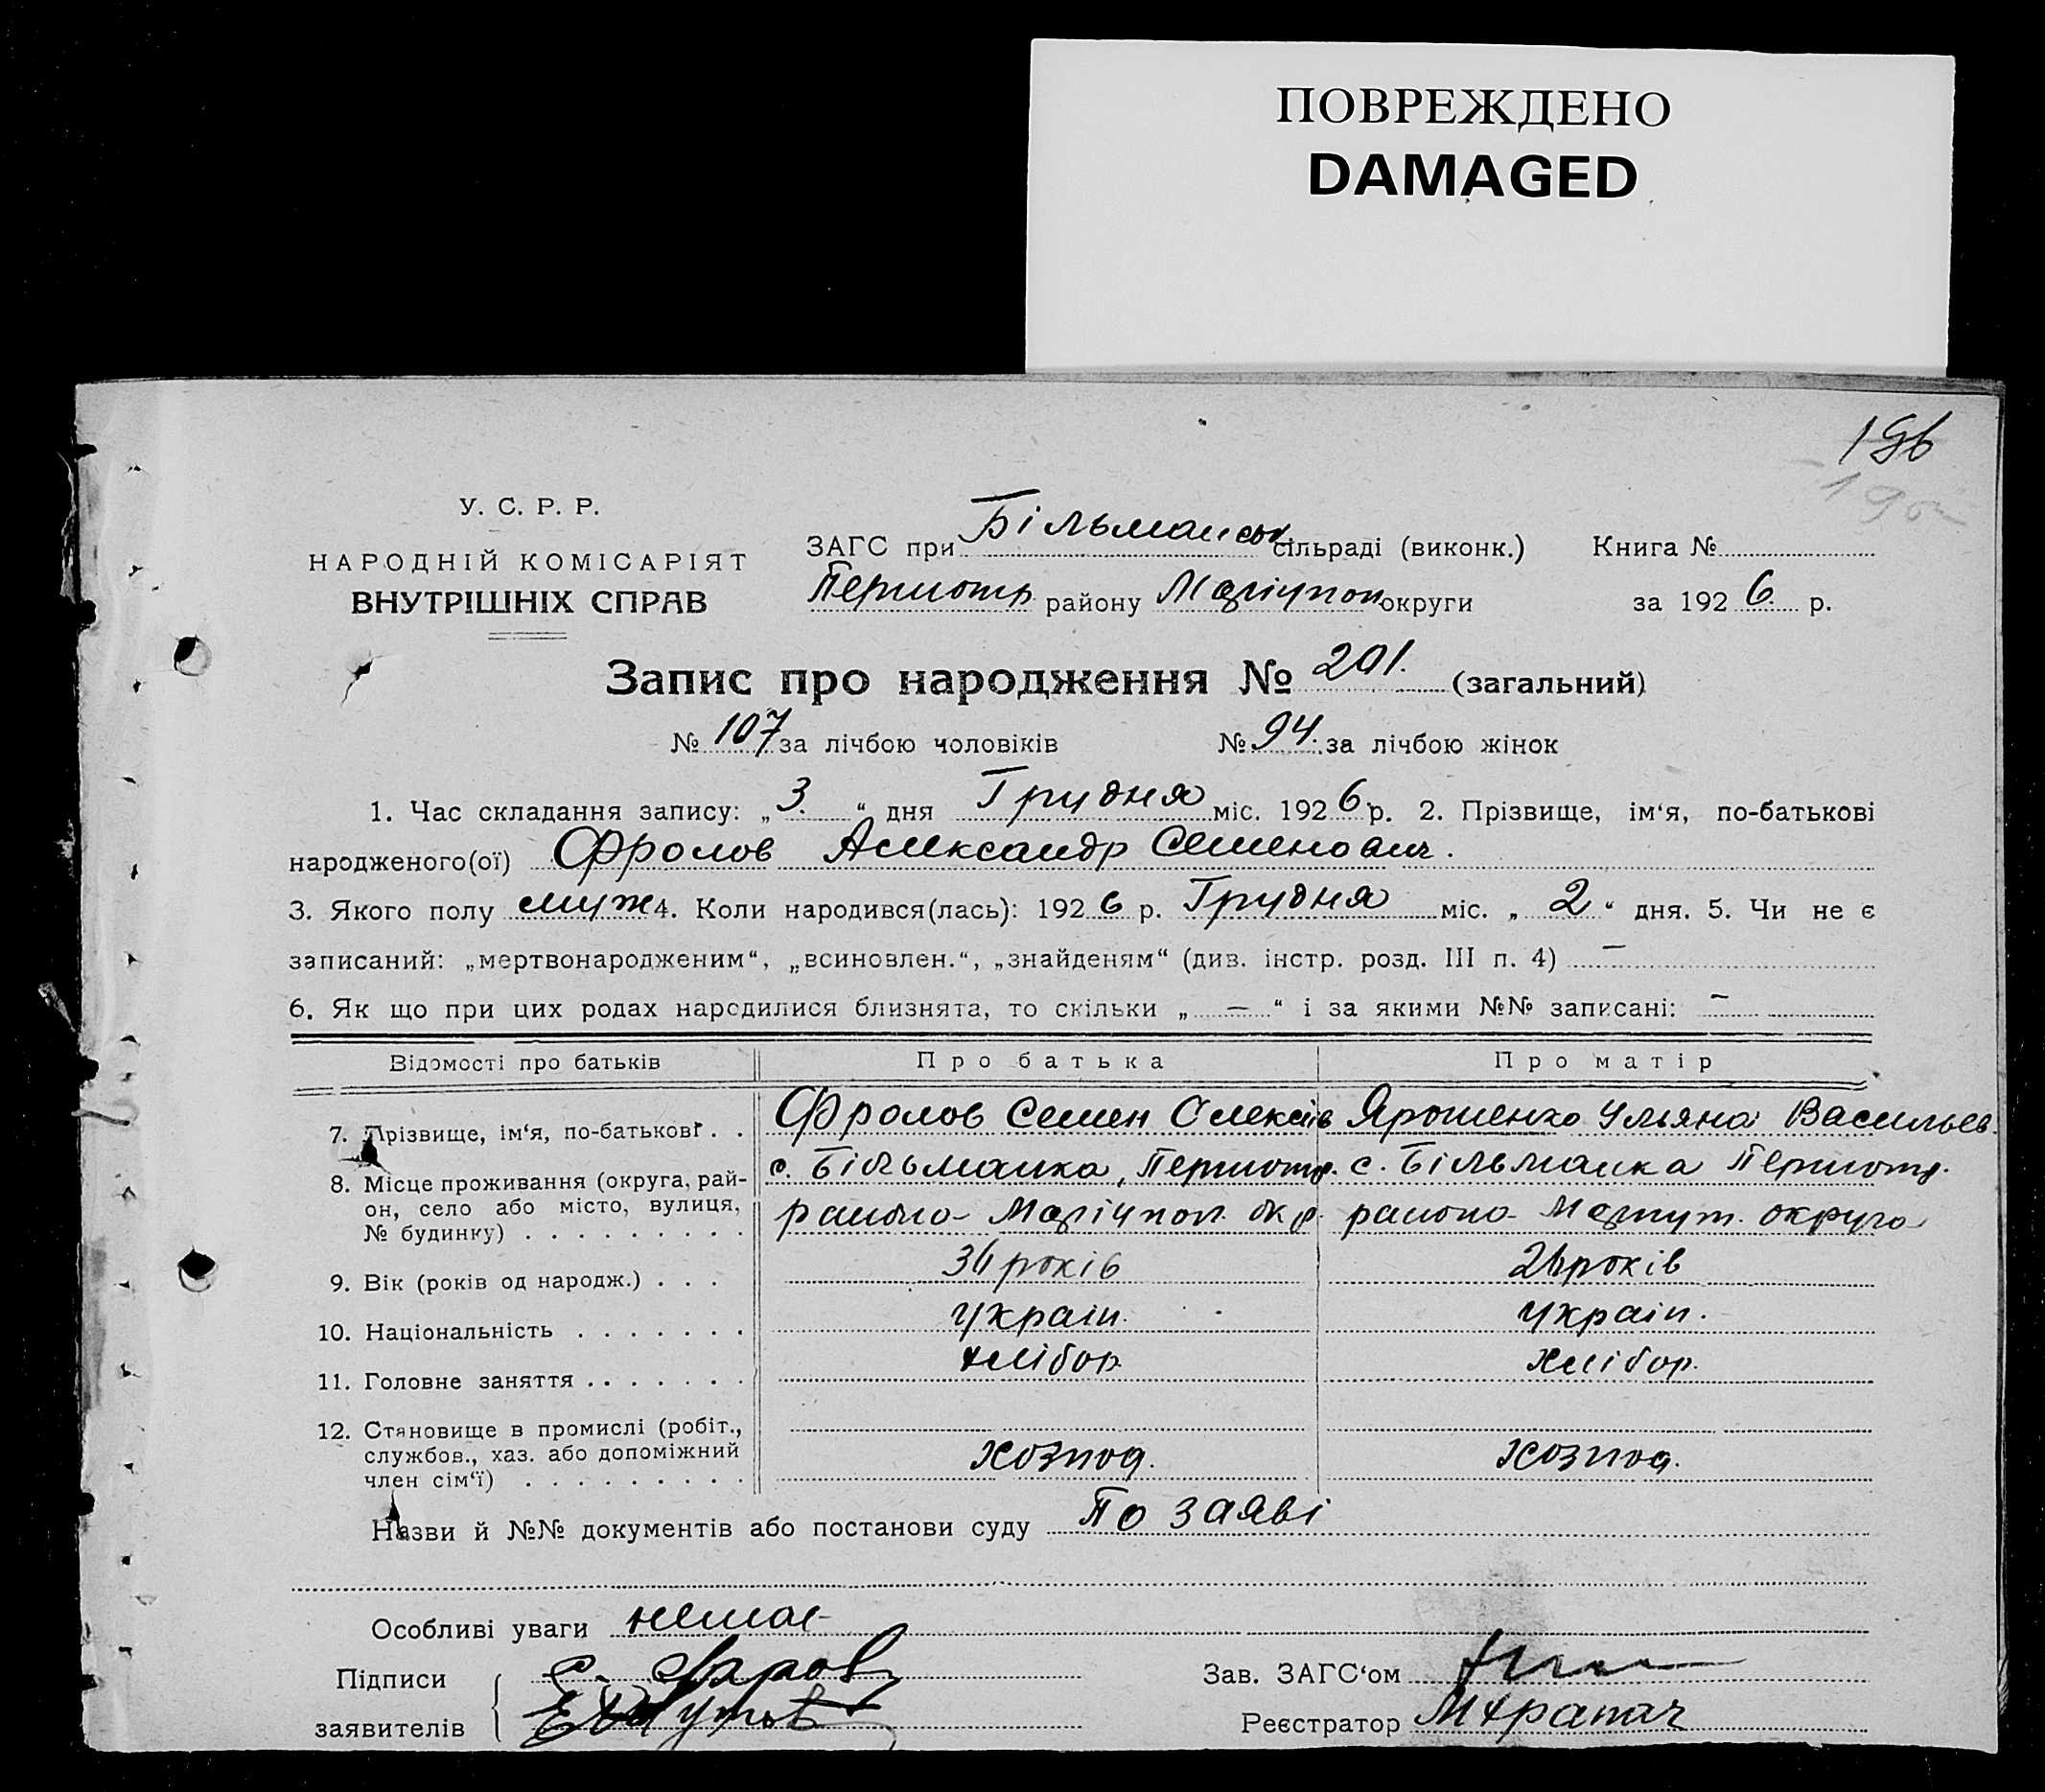 ПОВРЕЖДЕНО
DAMAGED
196
У. С. Р. Р.
НАРОДНІЙ КОМІСАРІЯТ
ВНУТРІШНІХ СПРАВ
ЗАГС при Більманськ сільраді (виконк.) Книга №
Першотр району Маріупол округи за 1926 р.
Запис про народження № 201. (загальний)
№ 107 за лічбою чоловіків № 94. за лічбою жінок
1. Час складання запису: „3.“ дня Грудня міс. 1926 р. 2. Прізвище, ім‘я, по-батькові
народженого(ої) Фролов Александр Семенович.
3. Якого полу муж 4. Коли народився(лась): 1926 р. Грудня міс. „2“ дня. 5. Чи не є
записаний: „мертвонародженим“, „всиновлен.“, „знайденям“ (див. інстр. розд. III п. 4) —
6. Як що при цих родах народилися близнята, то скільки „—“ і за якими №№ записані: —
Відомості про батьків Про батька Про матір
7. Прізвище, ім‘я, по-батькові . . Фролов Семен Олексіїв Ярошенко Уляна Васильев.
8. Місце проживання (округа, рай- с. Більманка, Першотр. с. Більманка Першотр.
он, село або місто, вулиця, району Маріупол. окр. району Округа
№ будинку) . . . . . . . . .
9. Вік (років од народж.) . . . років років
10. Національність . . . . . . . Україн. Україн.
11. Головне заняття . . . . . . . хлібор. хлібор.
12. Становище в промислі (робіт.,
службов., хаз. або допоміжний хозпод. хозпод.
член сім‘ї) . . . . . . . . .
Назви й №№ документів або постанови суду По заяві
Особливі уваги немає
Підписи Зав. ЗАГС‘ом
заявителів Реєстратор